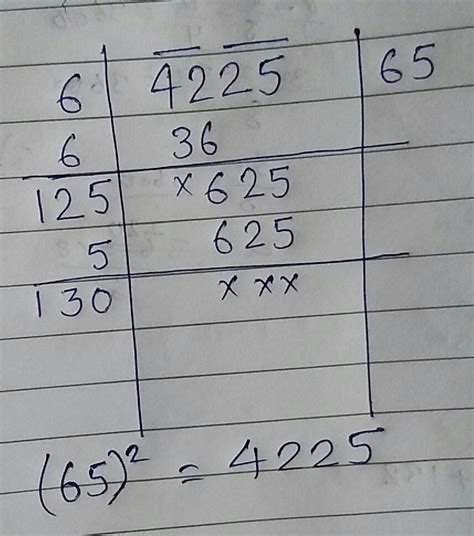 6 4225 65
6 36
125 ×625
5 625
130 ×××
(65)² = 4225